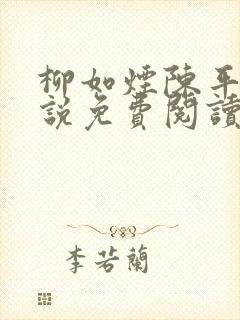 柳如煙陳平
說免費閱讀
李若蘭